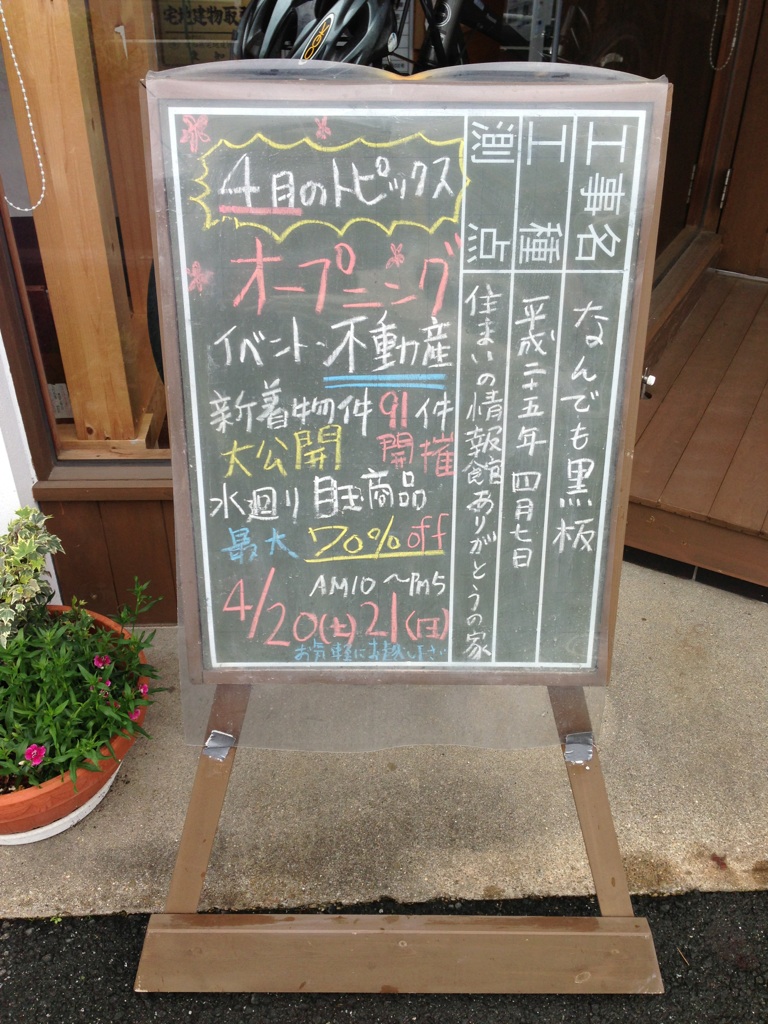 宅地建物取
工事名 なんでも黒板
工種 平成二十五年 四月七日
測点 住まいの情報館ありがとうの家
4月のトピックス
オープニング
イベント・不動産
新着物件91件
大公開 開催
水廻り目玉商品
最大 70%off
AM10～PM5
4/20(土)21(日)
お気軽にお越し下さい